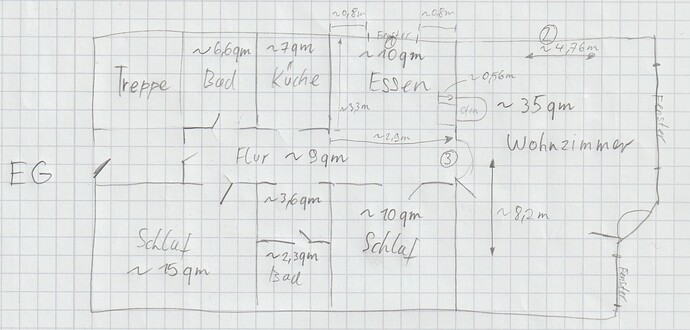 ~0,8m
~0,8m
②
Fenster
~4,76m
~6,6qm
~7qm
~10qm
Treppe
Bad
Küche
Essen
~0,56m
~3,3m
Ofen
~35qm
Fenster
~2,9m
Wohnzimmer
Flur ~9qm
③
EG
~3,6qm
~10qm
~8,2m
Schlaf
~15qm
Schlaf
~2,3qm
Bad
Fenster